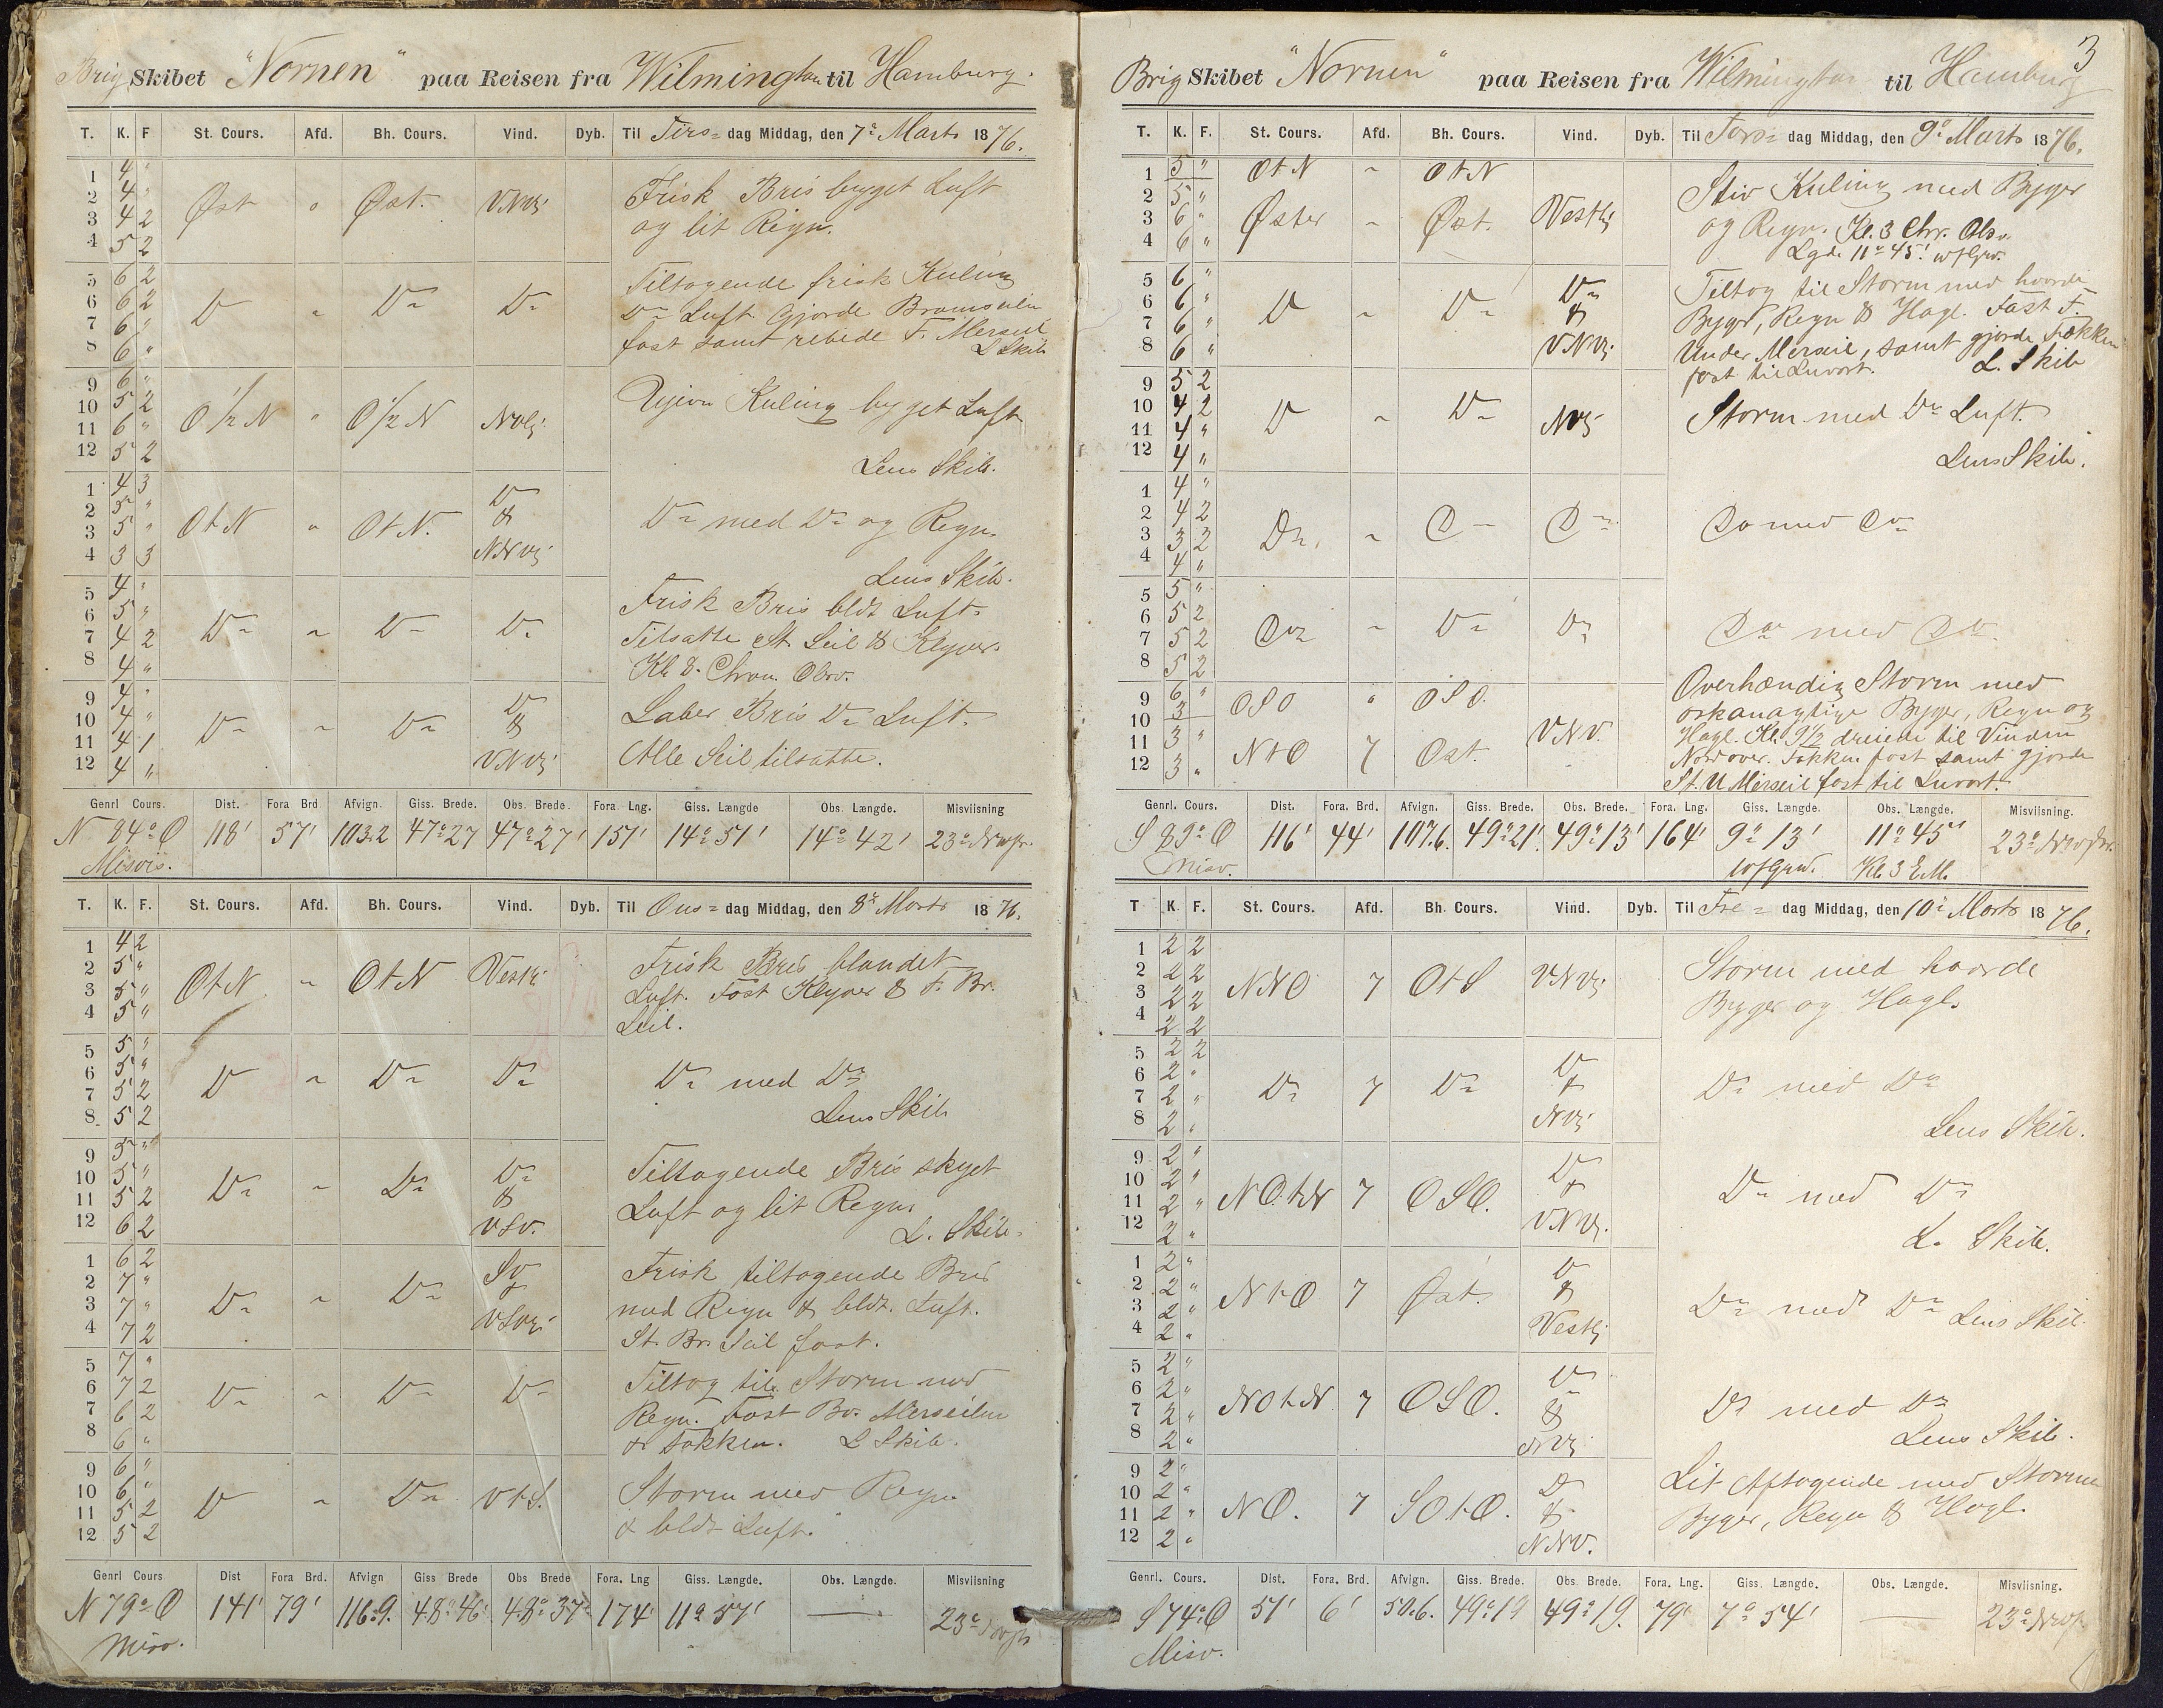 Brig Skibet "Nornen" paa Reisen fra Wilmington til Hamburg.
T. K. F St. Cours. Afd. Bh. Cours. Vind. Dyb. Til Tirs= dag Middag, den 7de Marts 1876.
1 4 "
2 4 "
3 4 2
4 5 2
Øst " Øst. VNVlig
Frisk Bris bygget Luft
og lit Regn.
5 6 2
6 6 2
7 6 "
8 6 "
Do " Do Do
Tiltagende frisk Kuling
Do Luft Gjorde Bramseilene
fast samt rebede F. Merseil
L Skib
9 6 "
10 5 2
11 6 "
12 5 2
O 1/2 N " O 1/2 N NVlig
Ujevn Kuling bygget Luft
Lens Skib.
1 4 3
2 5 "
3 5 "
4 3 3
OtN " OtN. Do & NNVlig
Do med Do og Regn.
Lens Skib.
5 4 "
6 5 "
7 4 2
8 4 "
Do " Do Do
Frisk Bris bldt Luft.
Tilsatte St. Seil & Klyver.
Kl 8. Chron. Obsv.
9 4 "
10 4 "
11 4 1
12 4 "
Do " Do Do & VNVlig
Laber Bris Do Luft.
Alle Seil tilsatte.
Genrl Cours. Dist. Fora Brd Afvign. Giss. Brede. Obs. Brede. Fora. Lng. Giss. Længde Obs. Længde. Misviisning
N 84° O 118' 57' 103.2 47°27 47°27' 157' 14°51' 14°42' 23° NV
Misvis.
T. K. F. St. Cours. Afd. Bh. Cours. Vind. Dyb. Til Ons= dag Middag, den 8de Marts 1876.
1 4 2
2 5 "
3 5 "
4 5 "
OtN " OtN Vestlig
Frisk Bris blandet
Luft. Fast Klyver & F. Br.
Seil.
5 5 "
6 5 "
7 5 2
8 5 2
Do " Do Do
Do med Do
Lens Skib
9 5 "
10 5 "
11 5 2
12 6 2
Do " Do Do & VSV.
Tiltagende Bris skyet
Luft og lit Regn.
L. Skib.
1 6 2
2 7 "
3 7 "
4 7 2
Do " Do SV & VSVlig
Frisk tiltagende Bris
med Regn & bldt. Luft.
St. Br. Seil fast.
5 7 "
6 7 2
7 6 2
8 6 "
Do " Do Do
Tiltog til Storm med
Regn. Fast Bv. Merseilen
& Fokken. L Skib.
9 6 "
10 6 "
11 5 2
12 5 2
Do " Do VtS.
Storm med Regn
& bldt Luft.
Genrl Cours Dist Fora Brd. Afvign Giss Brede Obs Brede Fora. Lng Giss. Længde. Obs. Længde. Misviisning
N 79° O 141' 79' 116.9. 48°46' 48°37' 174' 11°57' — 23°
Misv.
3
Brig Skibet "Nornen" paa Reisen fra Wilmington til Hamburg
T. K. F. St. Cours. Afd. Bh. Cours. Vind. Dyb. Til Tors= dag Middag, den 9de Marts 1876.
1 5 "
2 5 "
3 6 "
4 6 "
OtN " OtN
Øster " Øst. Vestlig
Stiv Kuling med Byger
og Regn. Kl. 3 Chr. Obsv.
Lgde 11° 45'
5 6 "
6 6 "
7 6 "
8 6 "
Do " Do Do & VNVlig
Tiltog til Storm med haarde
Byger, Regn & Hagl. Fast F.
Under Merseil, samt gjorde Fokken
fast til Luvart. L. Skib
9 5 2
10 4 2
11 4 "
12 4 "
Do " Do NVlig
Storm med Do Luft.
Lens Skib.
1 4 "
2 4 2
3 3 2
4 4 "
Do. " Do Do
Do med Do
5 5 "
6 5 2
7 5 2
8 5 2
Do " Do Do
Do med Do
9 6 "
10 3
11 3 "
12 3 "
OSO " OSO.
NtO 7 Øst. VNV.
Overhændig Storm med
orkanagtige Byger, Regn og
Hagl. Kl. 9 1/2 dreiede til Vinden
Nordover. Fokken fast samt gjorde
St. U Merseil fast til Luvart.
Genrl. Cours. Dist. Fora. Brd. Afvign. Giss. Brede. Obs. Brede. Fora. Lng. Giss. Længde. Obs. Længde. Misviisning.
S 89° O 116' 44' 107.6. 49°21' 49°13' 164' 9°13' 11°45' 23° NV
Misv. Kl. 3 E.M.
T K. F. St. Cours. Afd. Bh. Cours. Vind. Dyb. Til Fre= dag Middag, den 10de Marts 1876.
1 2 2
2 2 2
3 2 2
4 2 2
NNO 7 OtS VNVlig
Storm med haarde
Byger og Hagl.
5 2 2
6 2 "
7 2 "
8 2 "
Do 7 Do Do & NVlig
Do med Do
Lens Skib.
9 2 "
10 2 "
11 2 "
12 2 "
NOtN 7 OSO. Do & VNVlig.
Do med Do
L. Skib.
1 2 "
2 2 "
3 2 "
4 2 "
NtO 7 Øst. Do & Vestlig
Do med Do Lens Skib.
5 2 "
6 2 "
7 2 "
8 2 "
NOtN 7 OSO. Do & NVlig
Do med Do
Lens Skib.
9 2 "
10 2 "
11 2 "
12 2 "
NO. 7 SOtO. Do & NNV.
Lit Aftagende med Storm
Byger, Regn & Hagl.
Genrl. Cours. Dist. Fora. Brd. Afvign. Giss. Brede. Obs. Brede. Fora. Lng. Giss. Længde. Obs. Længde. Misviisning.
S 74° O 51' 6' 50.6. 49°19 49°19. 79' 7°54' — 23° NV
Misv.